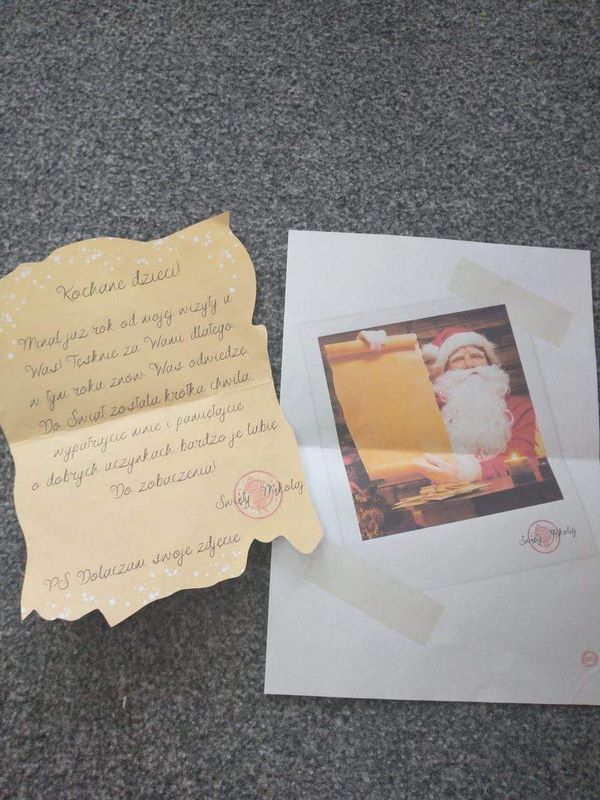 Kochane dzieci!
Minął już rok od mojej wizyty u
Was! Tęsknię za Wami dlatego
w tym roku znów Was odwiedzę.
Do Świąt została krótka chwila
wypatrujcie mnie i pamiętajcie
o dobrych uczynkach, bardzo je lubię.
Do zobaczenia!
Święty Mikołaj
PS Dołączam swoje zdjęcie
Święty Mikołaj